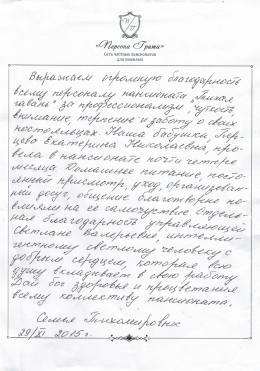 «Персона Грата»
Сеть частных пансионатов
для пожилых
Выражаем огромную благодарность
всему персоналу пансионата „Тихая
гавань" за профессионализм, чуткость,
внимание, терпение и заботу о своих
постояльцах. Наша бабушка
Екатерина Николаевна, про-
вела в пансионате почти четыре
месяца. Домашнее питание, посто-
янный присмотр, уход, организован-
ный досуг, общение благотворно по-
влияли на ее самочувствие. Отдель-
ная благодарность управляющей
Светлане Валерьевне, интелли-
гентному светлому человеку с
добрым сердцем, которая всю
душу вкладывает в свою работу.
Дай бог здоровья и процветания
всему коллективу пансионата.
Семья Тихомировых
29/XI 2015 г.